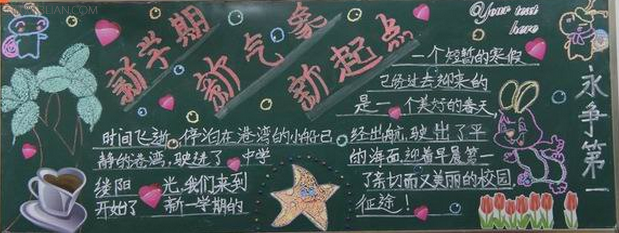 新学期
新气象
新起点
Your text
here
一个短暂的寒假
已经过去迎来的
是一个美好的春天
永争第一
时间飞逝,停泊在港湾的小船已经出航,驶出了平
静的港湾,驶进了 中学的海面,迎着早晨第一
缕阳 光,我们来到了亲切而又美丽的校园,
开始了 新一学期的征途!